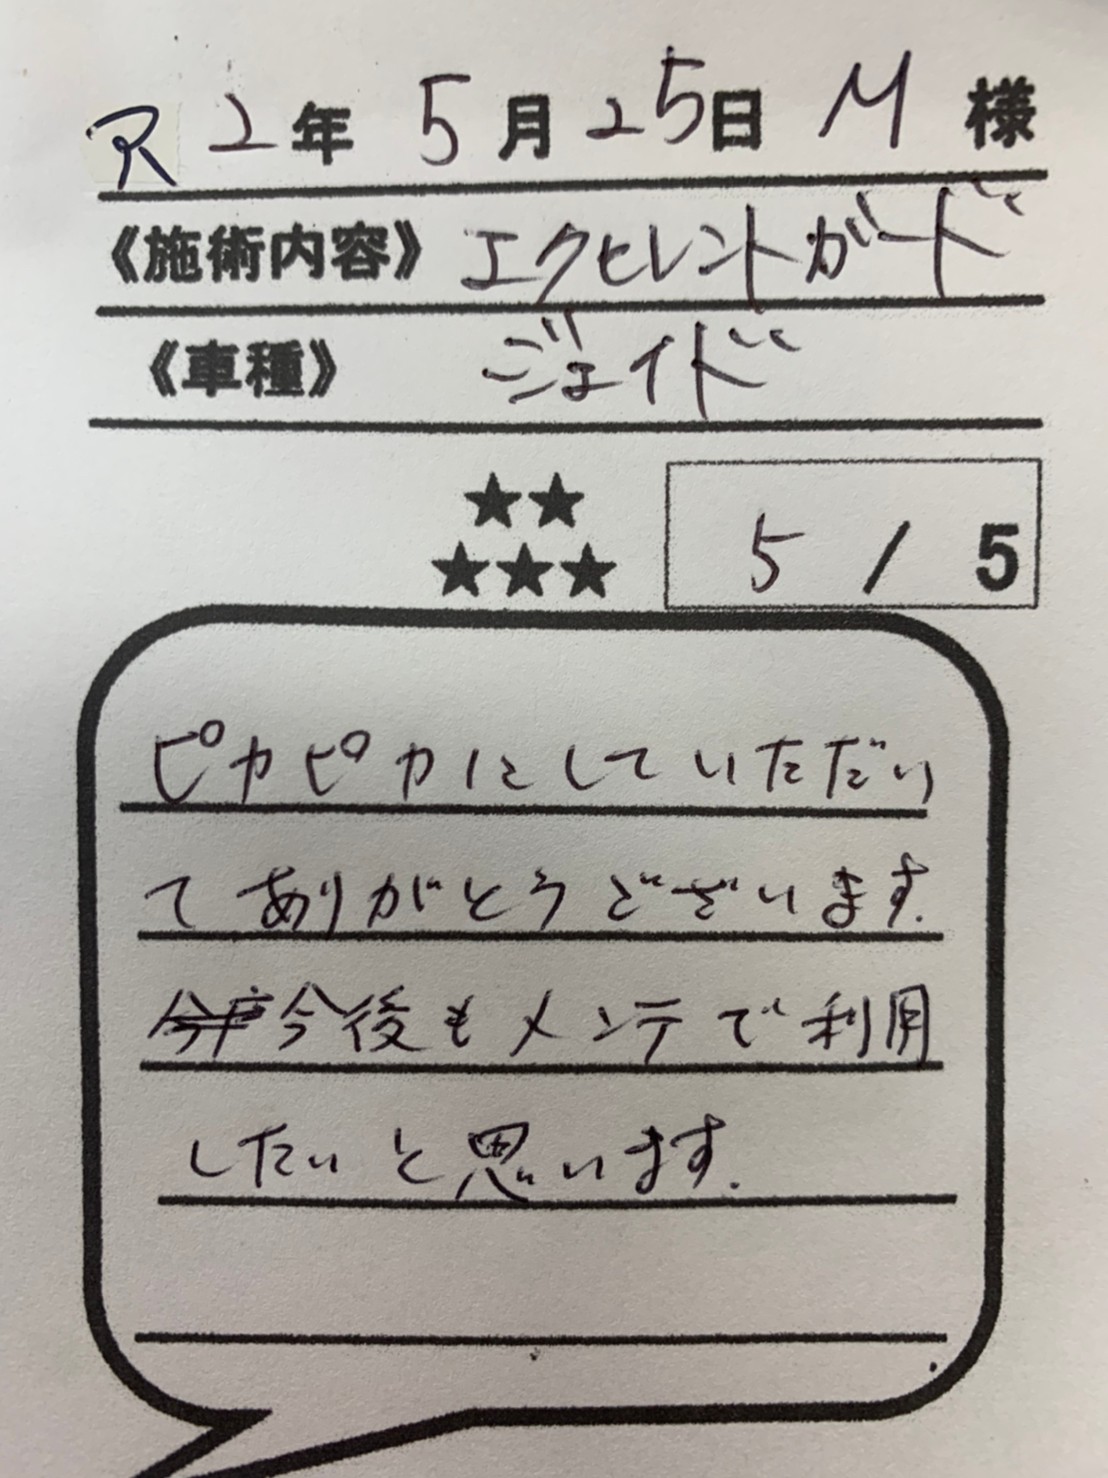 R2年5月25日 M 様
《施術内容》エクセレントガード
《車種》ジェイド
★★
★★★
5/5
ピカピカにしていただい
てありがとうございます.
今後もメンテで利用
したいと思います.